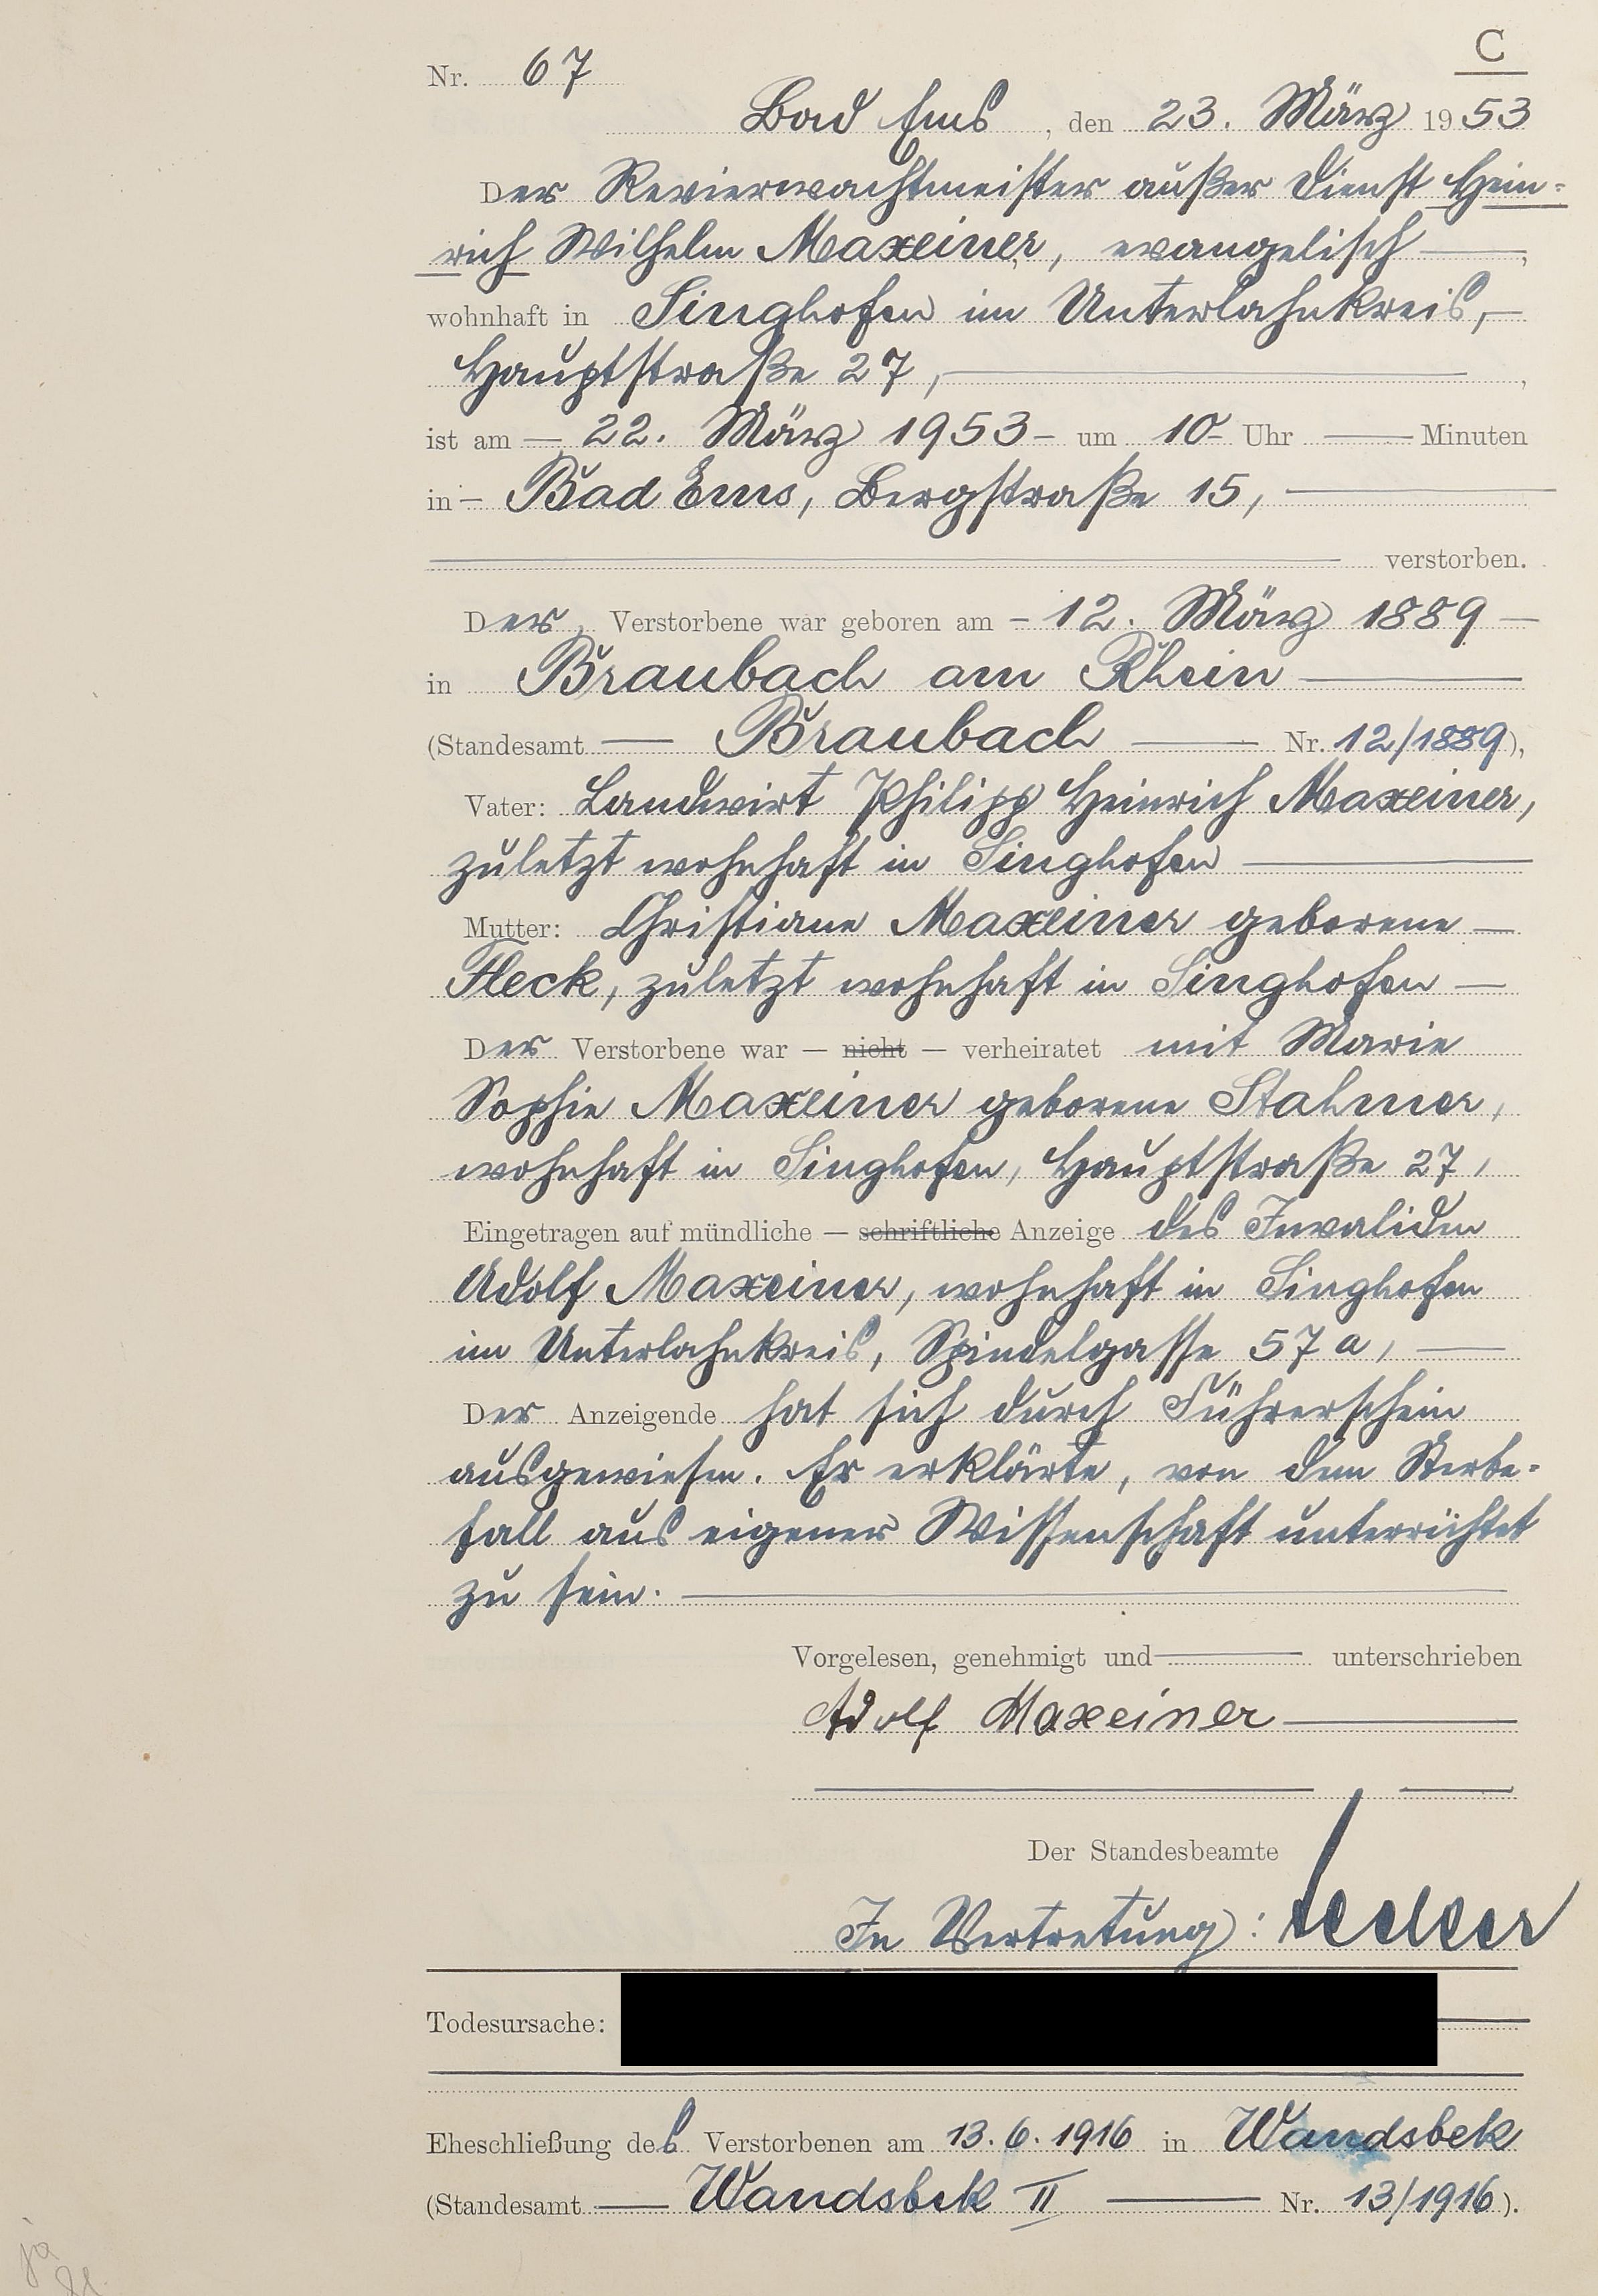 C
Nr. 67
Bad Ems, den 23. März 1953
Der Revierwachtmeister außer Dienst Hein-
rich Wilhelm Maxeiner, evangelisch —,
wohnhaft in Singhofen im Unterlahnkreis, —
Hauptstraße 27, —,
ist am — 22. März 1953 - um 10 - Uhr — Minuten
in - Bad Ems, Bergstraße 15, —
— verstorben.
Der Verstorbene war geboren am - 12. März 1889 —
in Braubach am Rhein —
(Standesamt — Braubach — Nr. 12/1889),
Vater: Landwirt Philipp Heinrich Maxeiner,
zuletzt wohnhaft in Singhofen —
Mutter: Christiane Maxeiner geborene —
Fleck, zuletzt wohnhaft in Singhofen —
Der Verstorbene war — nicht — verheiratet mit Marie
Sophie Maxeiner geborene Stahmer,
wohnhaft in Singhofen, Hauptstraße 27,
Eingetragen auf mündliche — schriftliche Anzeige des Invaliden
Adolf Maxeiner, wohnhaft in Singhofen
im Unterlahnkreis, Spindelgasse 57 a, —
Der Anzeigende hat sich durch Führerschein
ausgewiesen. Er erklärte, von dem Sterbe-
fall aus eigener Wissenschaft unterrichtet
zu sein. —
Vorgelesen, genehmigt und — unterschrieben
Adolf Maxeiner —
Der Standesbeamte
In Vertretung:
Todesursache:
Eheschließung des Verstorbenen am 13.6.1916 in Wandsbek
(Standesamt — Wandsbek II — Nr. 13/1916).